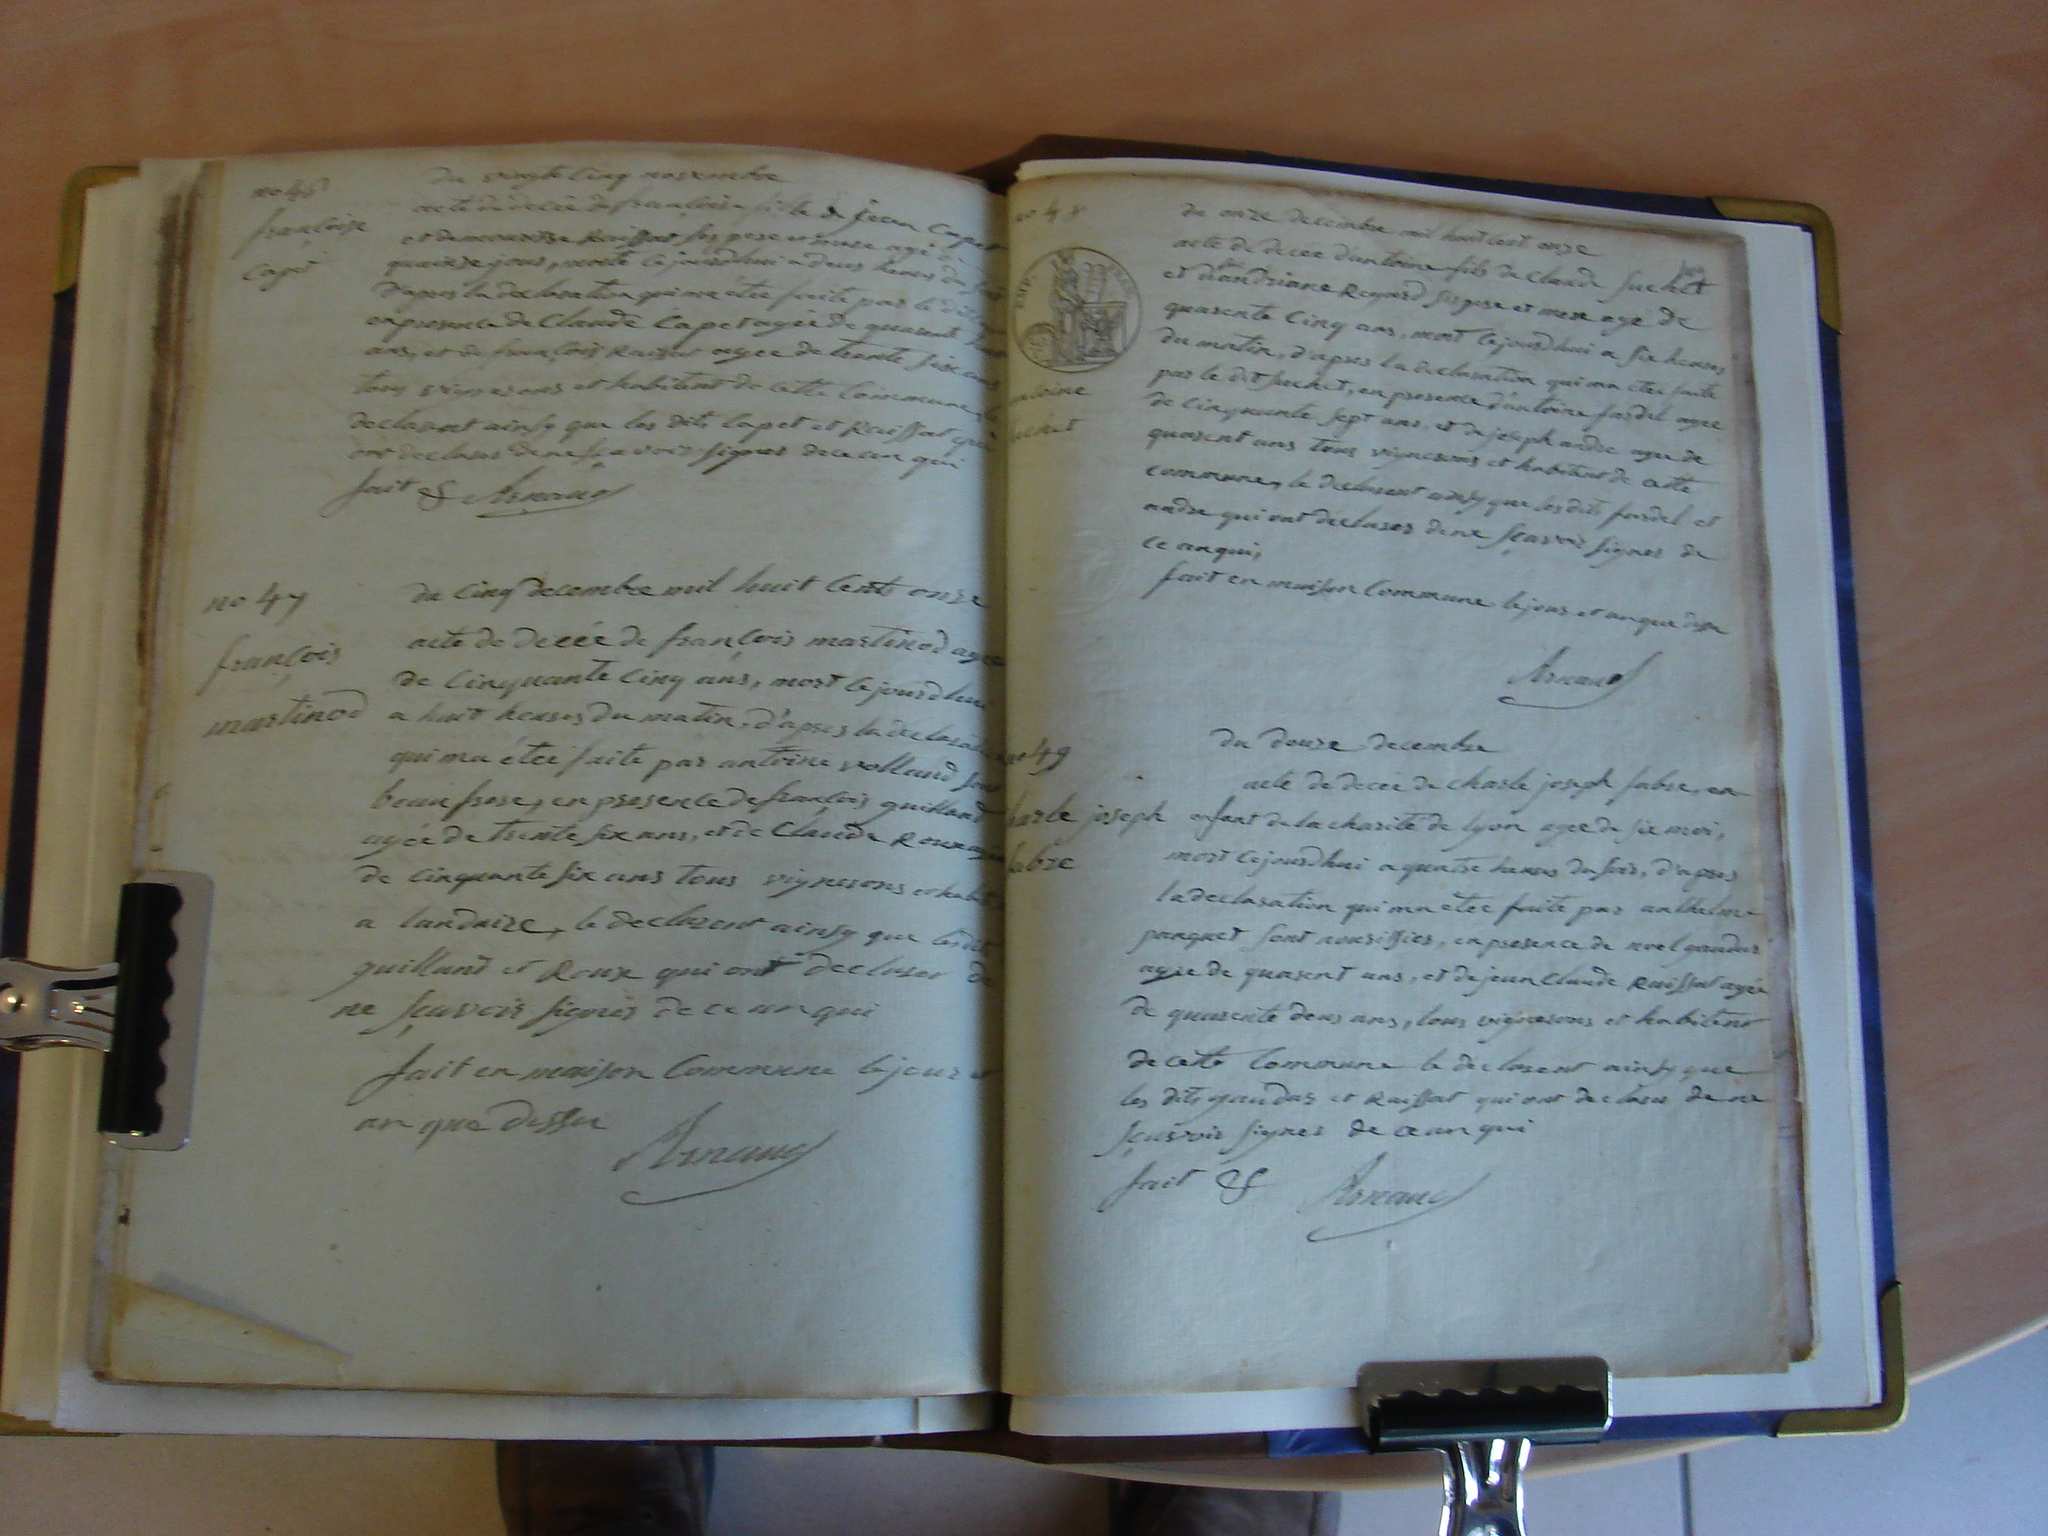 no 46
françoise
Capet
du vingt Cinq novembre
acte de decée de françoise fille de jean Capet
et de
quinze jours, morte cejourdhui a deux heures du soir
d'apres la declaration qui ma étée faite par le dit
en presence de Claude Capet agée de quarent
ans, et de françois Raissat agée de trente six ans
tous vignerons et habitent de cette Commune, le
declarent ainsy que les dits Capet et Raissat qui
ont declarer de ne sçavoir signer de ce enqui
fait & Arnaud
no 47
françois
martinod
du Cinq decembre mil huit Cents onze
acte de decée de françois martinod agée
de Cinquante Cinq ans, mort cejourdhui
a huit heures du matin, d'apres la declaration
qui ma étée faite par antoine volland son
beaufrere, en presence de françois guilland
agée de trente six ans, et de Claude Roux agée
de cinquante six ans tous vignerons et habit
a landaize, le declarent ainsy que les dit
guilland et Roux qui ont declarer de
ne sçavoir signer de ce enqui
fait en maison Commune le jour et
an que dessu
Arnaud
no 48
EMP. FRAN.
antoine
suchet
du onze decembre mil huit Cent onze
acte de decée d'antoine fils de Claude suchet
et d'andriane Regard ses pere et mere agé de
quarente Cinq ans, mort cejourdhui a six heures
du matin, d'apres la declaration qui ma étée faite
par le dit suchet, en presence d'antoine fardel agee
de Cinquante sept ans, et de joseph andre agee de
quarent ans tous vignerons et habitent de cette
commune, le declarent ainsy que les dits fardel et
andre qui ont declarer de ne sçavoir signer de
ce enqui,
fait en maison Commune le jour et an que dessu
Arnaud
no 49
Charle joseph
fabre
du douze decembre
acte de decée de charle joseph fabre, en-
enfant de la charité de lyon agee de six moi,
mort cejourdhui a quatre heures du soir, d'apres
la declaration qui ma étée faite par anthelme
panquet sont nourissier, en presence de noel gaudas
agee de quarent ans, et de jean Claude Raissat agée
de quarente deus ans, tous vignerons et habitent
de cette Commune le declarent ainsy que
les dits gaudas et Raissat qui ont declarer de ne
sçavoir signer de ce enqui
fait & Arnaud